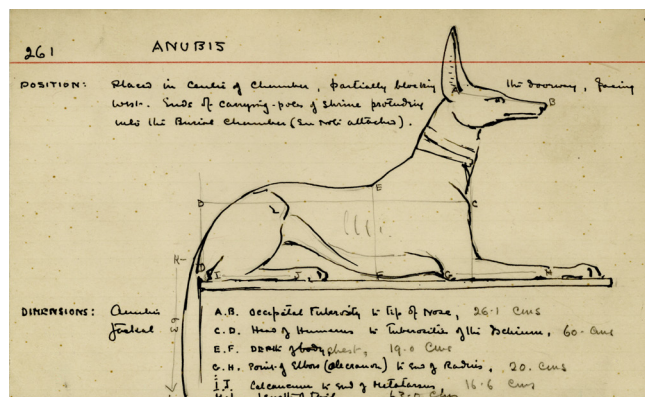 261 ANUBIS
POSITION: Placed in Centre of Chamber, partially blocking the doorway, facing
West. Ends of carrying-poles of shrine protruding
into the Burial Chamber (See Note attached).
A B
E
D C
K
D I J F G H
63
DIMENSIONS: Anubis A.B. Occipital Tuberosity to tip of Nose, 26.1 Cms
Jackal C.D. Head of Humerus to Tuberosities of the Ischium, 60. Cms
E.F. Depth of body chest, 19.0 Cms
G.H. Point of Elbow (Olecranon) to End of Radius, 20. Cms
I.J. Calcaneum to End of Metatarsus, 16.6 Cms
Length of Tail 63.0 Cms